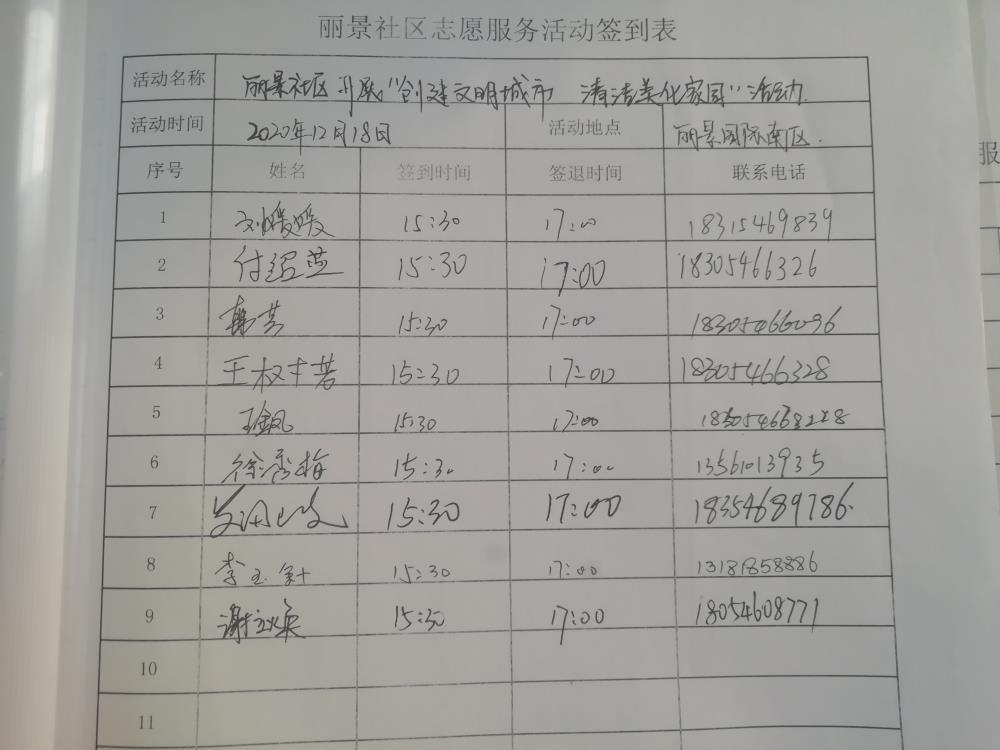 丽景社区志愿服务活动签到表
活动名称 丽景社区开展“创建文明城市 清洁美化家园”活动.
活动时间 2020年12月18日 活动地点 丽景国际南区.
序号 姓名 签到时间 签退时间 联系电话
1 刘媛媛 15:30 17:00 18315469839
2 付绍燕 15:30 17:00 18305466326
3 韩芸 15:30 17:00 18305466096
4 王权丰 15:30 17:00 18305466328
5 15:30 17:00
6 徐秀梅 15:30 17:00 13561013935
7 15:30 17:00 18354689786.
8 李玉 15:30 17:00 13181858886
9 谢 15:30 17:00 18054608771
10
11
服